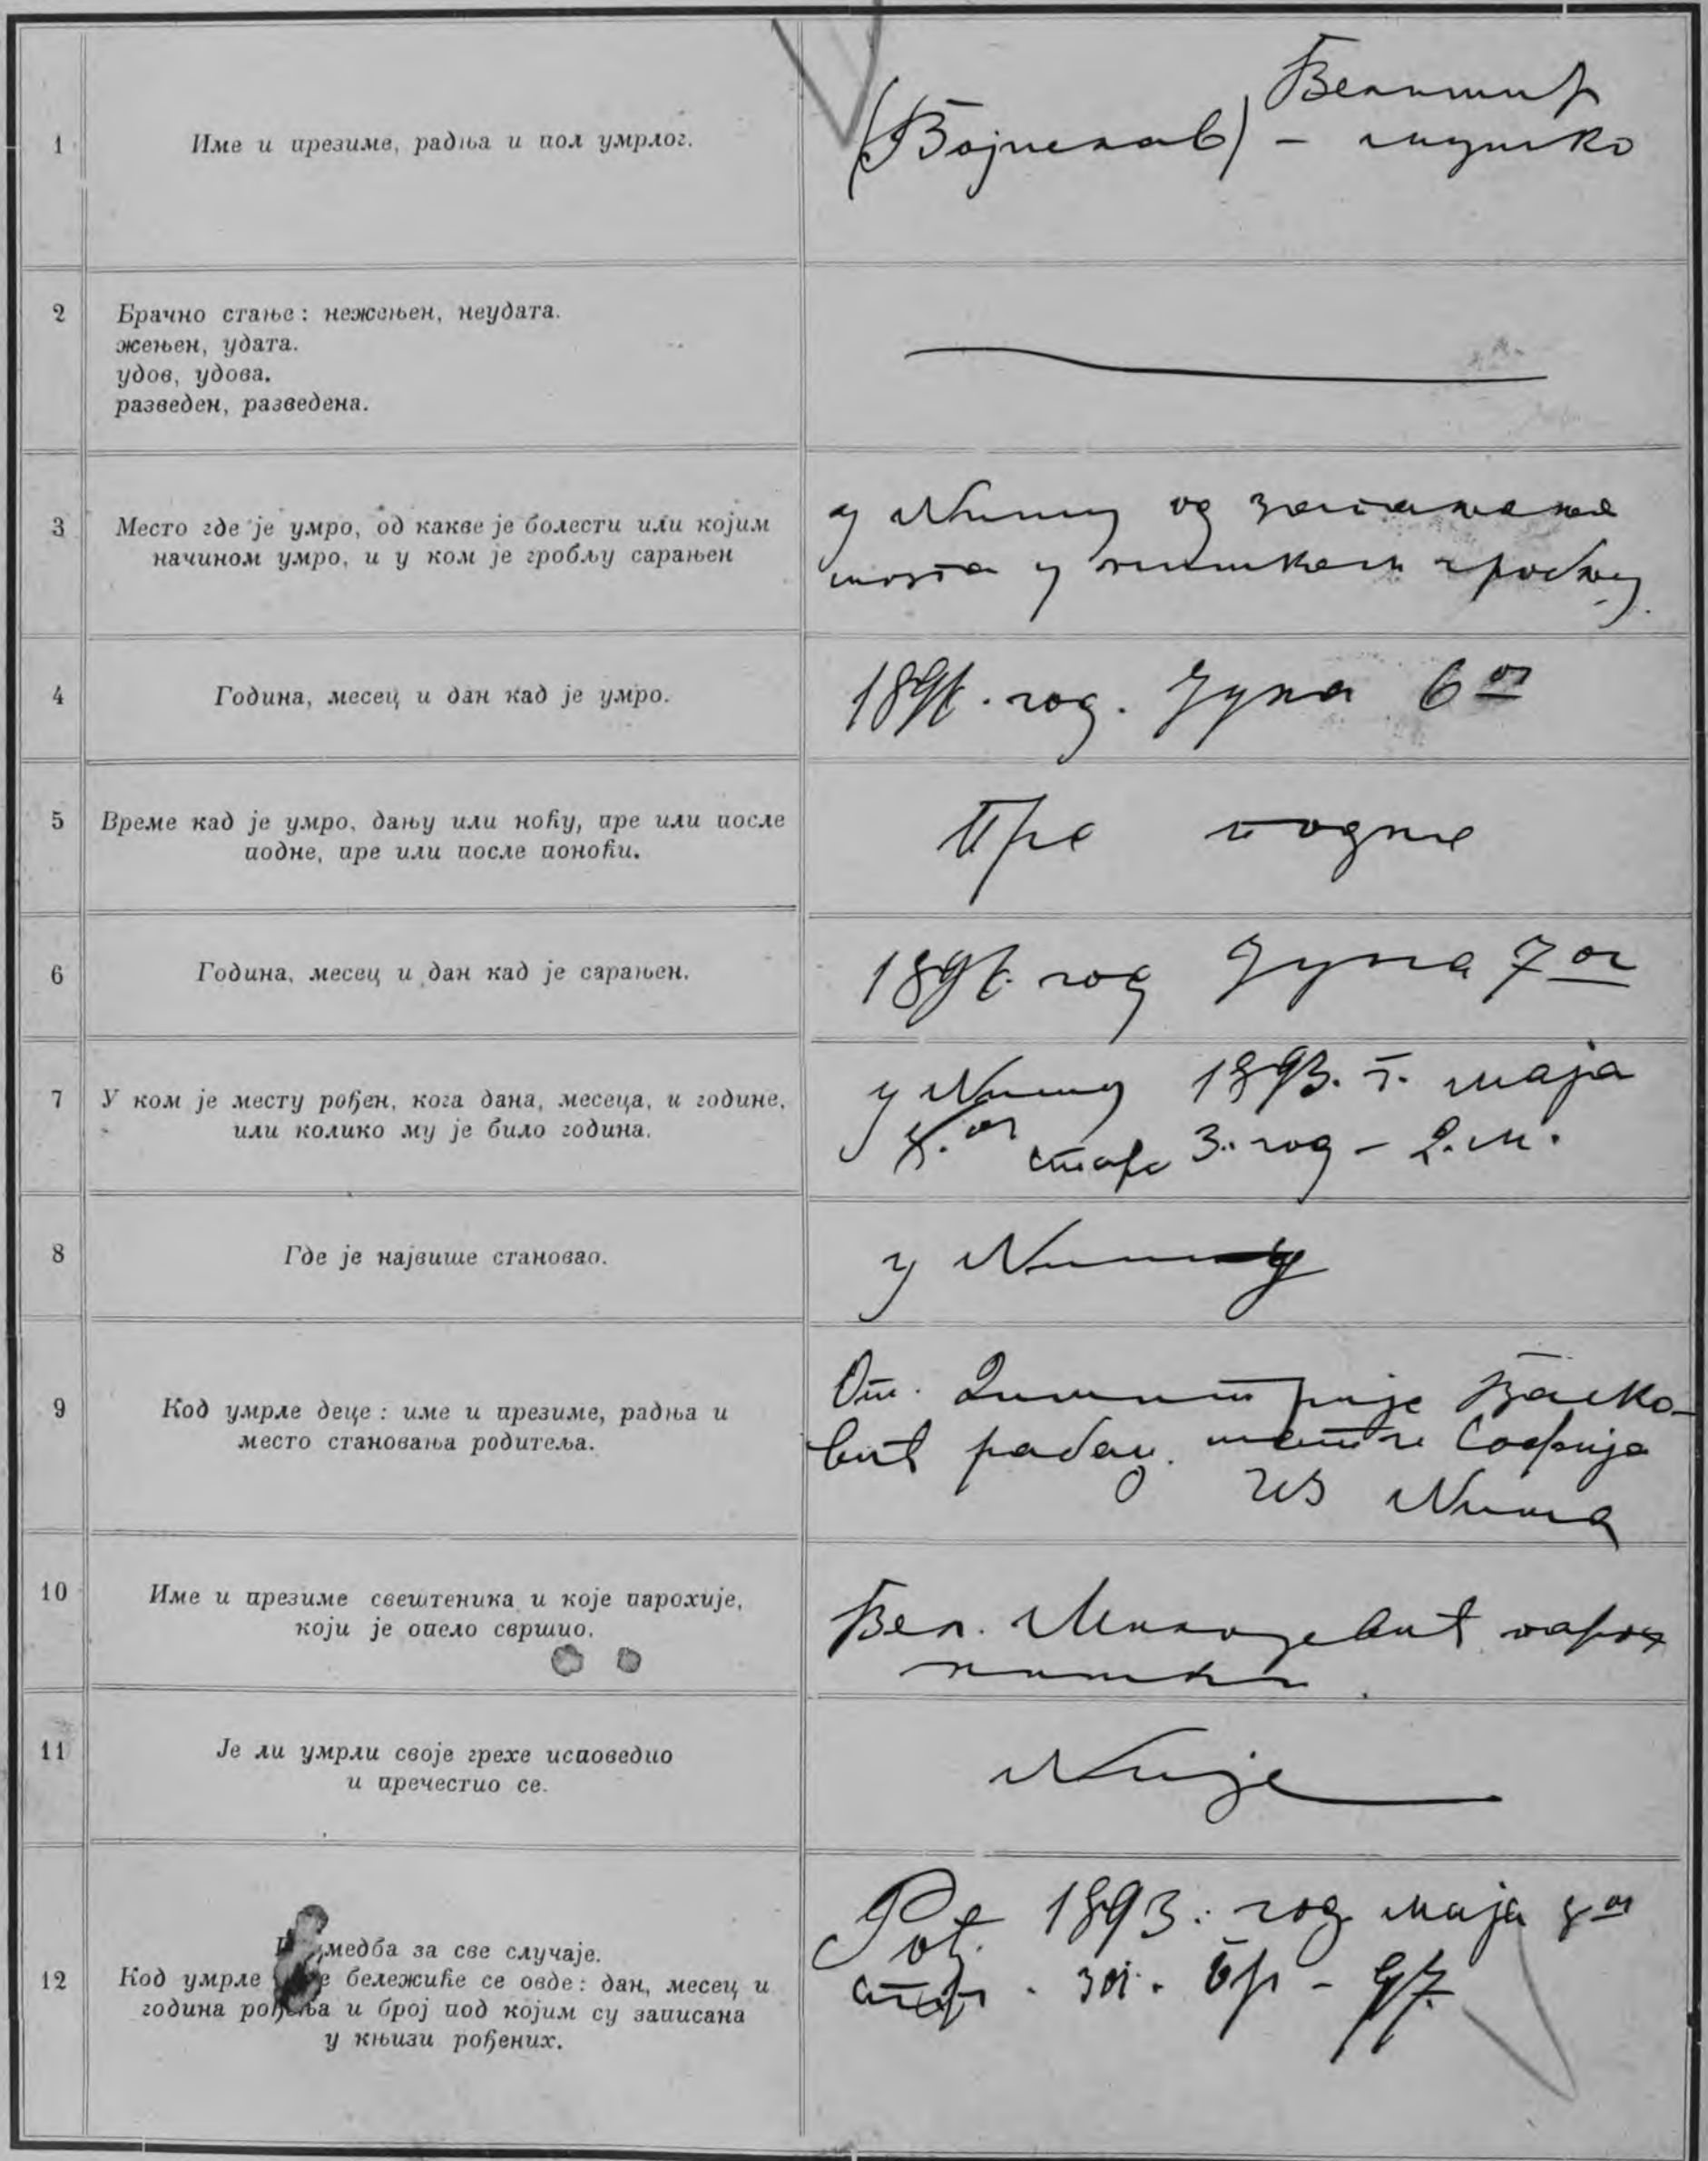 1
Име и презиме, радња и пол умрлог.
Велимир
(Војислав) – мушко
2
Брачно стање: нежењен, неудата.
жењен, удата.
удов, удова.
разведен, разведена.
3
Место где је умро, од какве је болести или којим
начином умро, и у ком је гробљу сарањен
у Нишу од запаљења
мозга у нишком гробљу.
4
Година, месец и дан кад је умро.
год. Јуна 6ог
5
Време кад је умро, дању или ноћу, пре или после
подне, пре или после поноћи.
Пре подне
6
Година, месец и дан кад је сарањен.
год Јуна 7ог
7
У ком је месту рођен, кога дана, месеца, и године,
или колико му је било година.
у Нишу 1893. г. маја
8.ог старо 3. год – 2. м.
8
Где је највише становао.
у Нишу
9
Код умрле деце: име и презиме, радња и
место становања родитеља.
От. Димитрије
вић мати Софија
из Ниша
10
Име и презиме свештеника и које парохије,
који је опело свршио.
Вел. парох
нишки.
11
Је ли умрли своје грехе исповедио
и пречестио се.
Није
12
медба за све случаје.
Код умрле бележиће се овде: дан, месец и
година рођења и број под којим су записана
у књизи рођених.
Рођ. 1893. год маја 8ог
стр. 301. бр – 97.